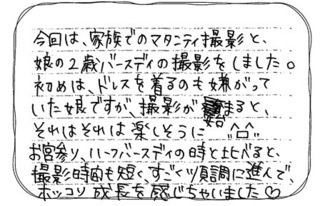 今回は、家族でのマタニティ撮影と、
娘の2歳バースディの撮影をしました。
初めは、ドレスを着るのも嫌がって
いた娘ですが、撮影が始まると、
それはそれは楽しそうに ^∩^
お宮参り、ハーフバースディの時と比べると、
撮影時間も短く、すごく順調に進んで、
ホッコリ成長を感じちゃいました♡